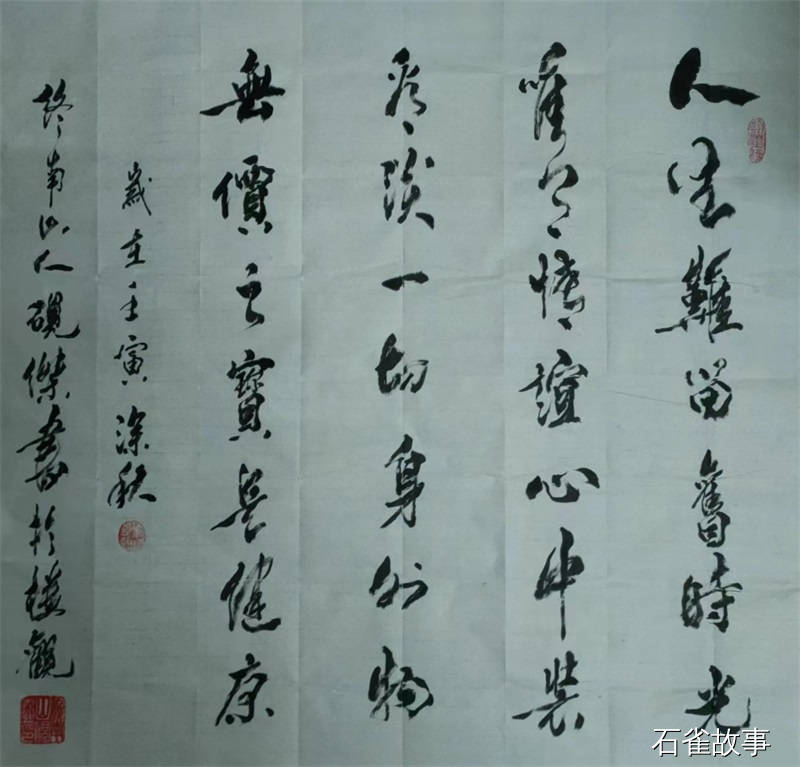 人生難留舊時光
唯有情誼心中裝
看淡一切身外物
無價之寶是健康
歲在壬寅深秋
終南山人硯傑書於樓觀
石雀故事